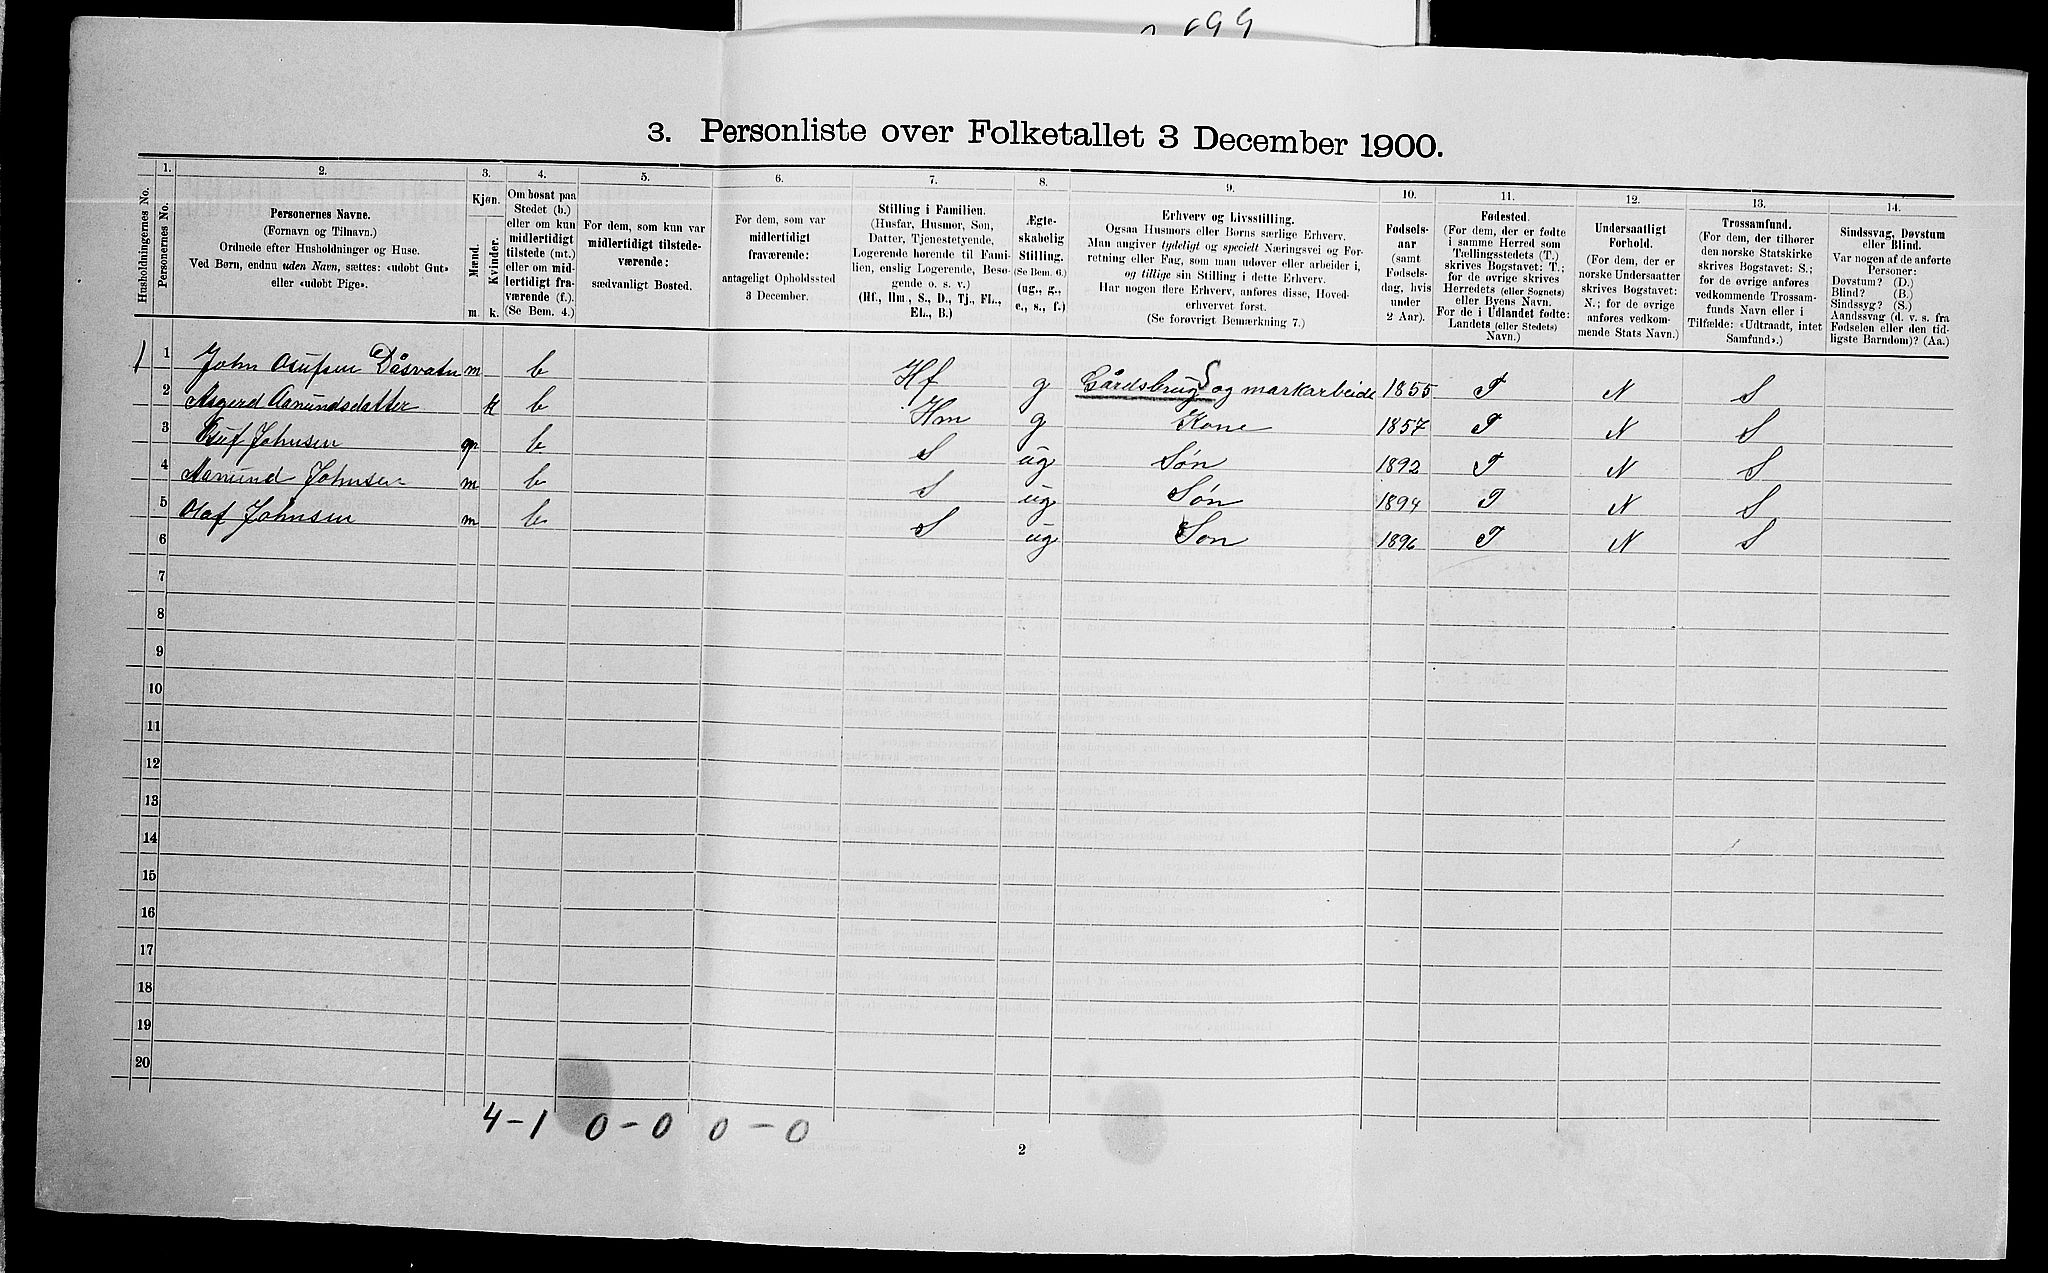 1899
3. Personliste over Folketallet 3 December 1900.
Husholdningernes No.
1.
Personernes No.
2.
Personernes Navne.
(Fornavn og Tilnavn.)
Ordnede efter Husholdninger og Huse.
Ved Børn, endnu uden Navn, sættes: «udobt Gut»
eller «udobt Pige».
3.
Kjøn.
Mænd.
Kvinder.
m. k.
4.
Om bosat paa
Stedet (b.)
eller om kun
midlertidigt
tilstede (mt.)
eller om mid-
lertidigt fra-
værende (f.).
(Se Bem. 4.)
5.
For dem, som kun var
midlertidigt tilstede-
værende:
sædvanligt Bosted.
6.
For dem, som var
midlertidigt
fraværende:
antageligt Opholdssted
3 December.
7.
Stilling i Familien.
(Husfar, Husmor, Søn,
Datter, Tjenestetyende,
Logerende hørende til Fami-
lien, enslig Logerende, Besø-
gende o. s. v.)
(Hf., Hm., S., D., Tj., FL.,
EL., B.)
8.
Ægte-
skabelig
Stilling.
(Se Bem. 6.)
(ug., g.,
e., s., f.)
9.
Erhverv og Livsstilling.
Ogsaa Husmors eller Børns særlige Erhverv.
Man angiver tydeligt og specielt Næringsvei og For-
retning eller Fag, som man udøver eller arbeider i,
og tillige sin Stilling i dette Erhverv.
Har nogen flere Erhverv, anføres disse, Hoved-
erhvervet først.
(Se forøvrigt Bemærkning 7.)
10.
Fødsels-
aar
(samt
Fødsels-
dag, hvis
under
2 Aar).
11.
Fødested.
(For dem, der er fødte
i samme Herred som
Tællingsstedets (T.)
skrives Bogstavet: T.;
for de øvrige skrives
Herredets (eller Sognets)
eller Byens Navn.
For de i Udlandet fødte:
Landets (eller Stedets)
Navn.)
12.
Undersaatligt
Forhold.
(For dem, der er
norske Undersaatter
skrives Bogstavet:
N.; for de øvrige
anføres vedkom-
mende Stats Navn.)
13.
Trossamfund.
(For dem, der tilhører
den norske Statskirke
skrives Bogstavet: S.;
for de øvrige anføres
vedkommende Trossam-
funds Navn eller i
Tilfælde: «Udtraadt, intet
Samfund».)
14.
Sindssvag, Døvstum
eller Blind.
Var nogen af de anførte
Personer:
Døvstum? (D.)
Blind? (B.)
Sindssyg? (S.)
Aandssvag (d. v. s. fra
Fødselen eller den tid-
ligste Barndom)? (Aa.)
1 1 John Osufsen Dåsvatn m b Hf g Gårdsbrug S og markarbeide 1855 T N S
2 Asgerd Aanundsdatter k b Hm g Kone 1857 T N S
3 Osuf Johnsen m b S ug Søn 1892 T N S
4 Aanund Johnsen m b S ug Søn 1894 T N S
5 Olaf Johnsen m b S ug Søn 1896 T N S
6
7
8
9
10
11
12
13
14
15
16
17
18
19
20
4-1 0-0 0-0
2